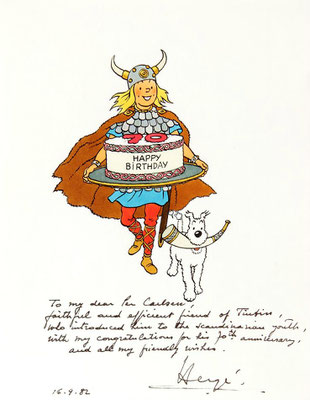 70
HAPPY
BIRTHDAY
To my dear Per Carlsen,
faithful and efficient friend of Tintin
who introduced him to the scandinavian youth,
with my congratulations for his 70th anniversary,
and all my friendly wishes.
Hergé.
16.9.82